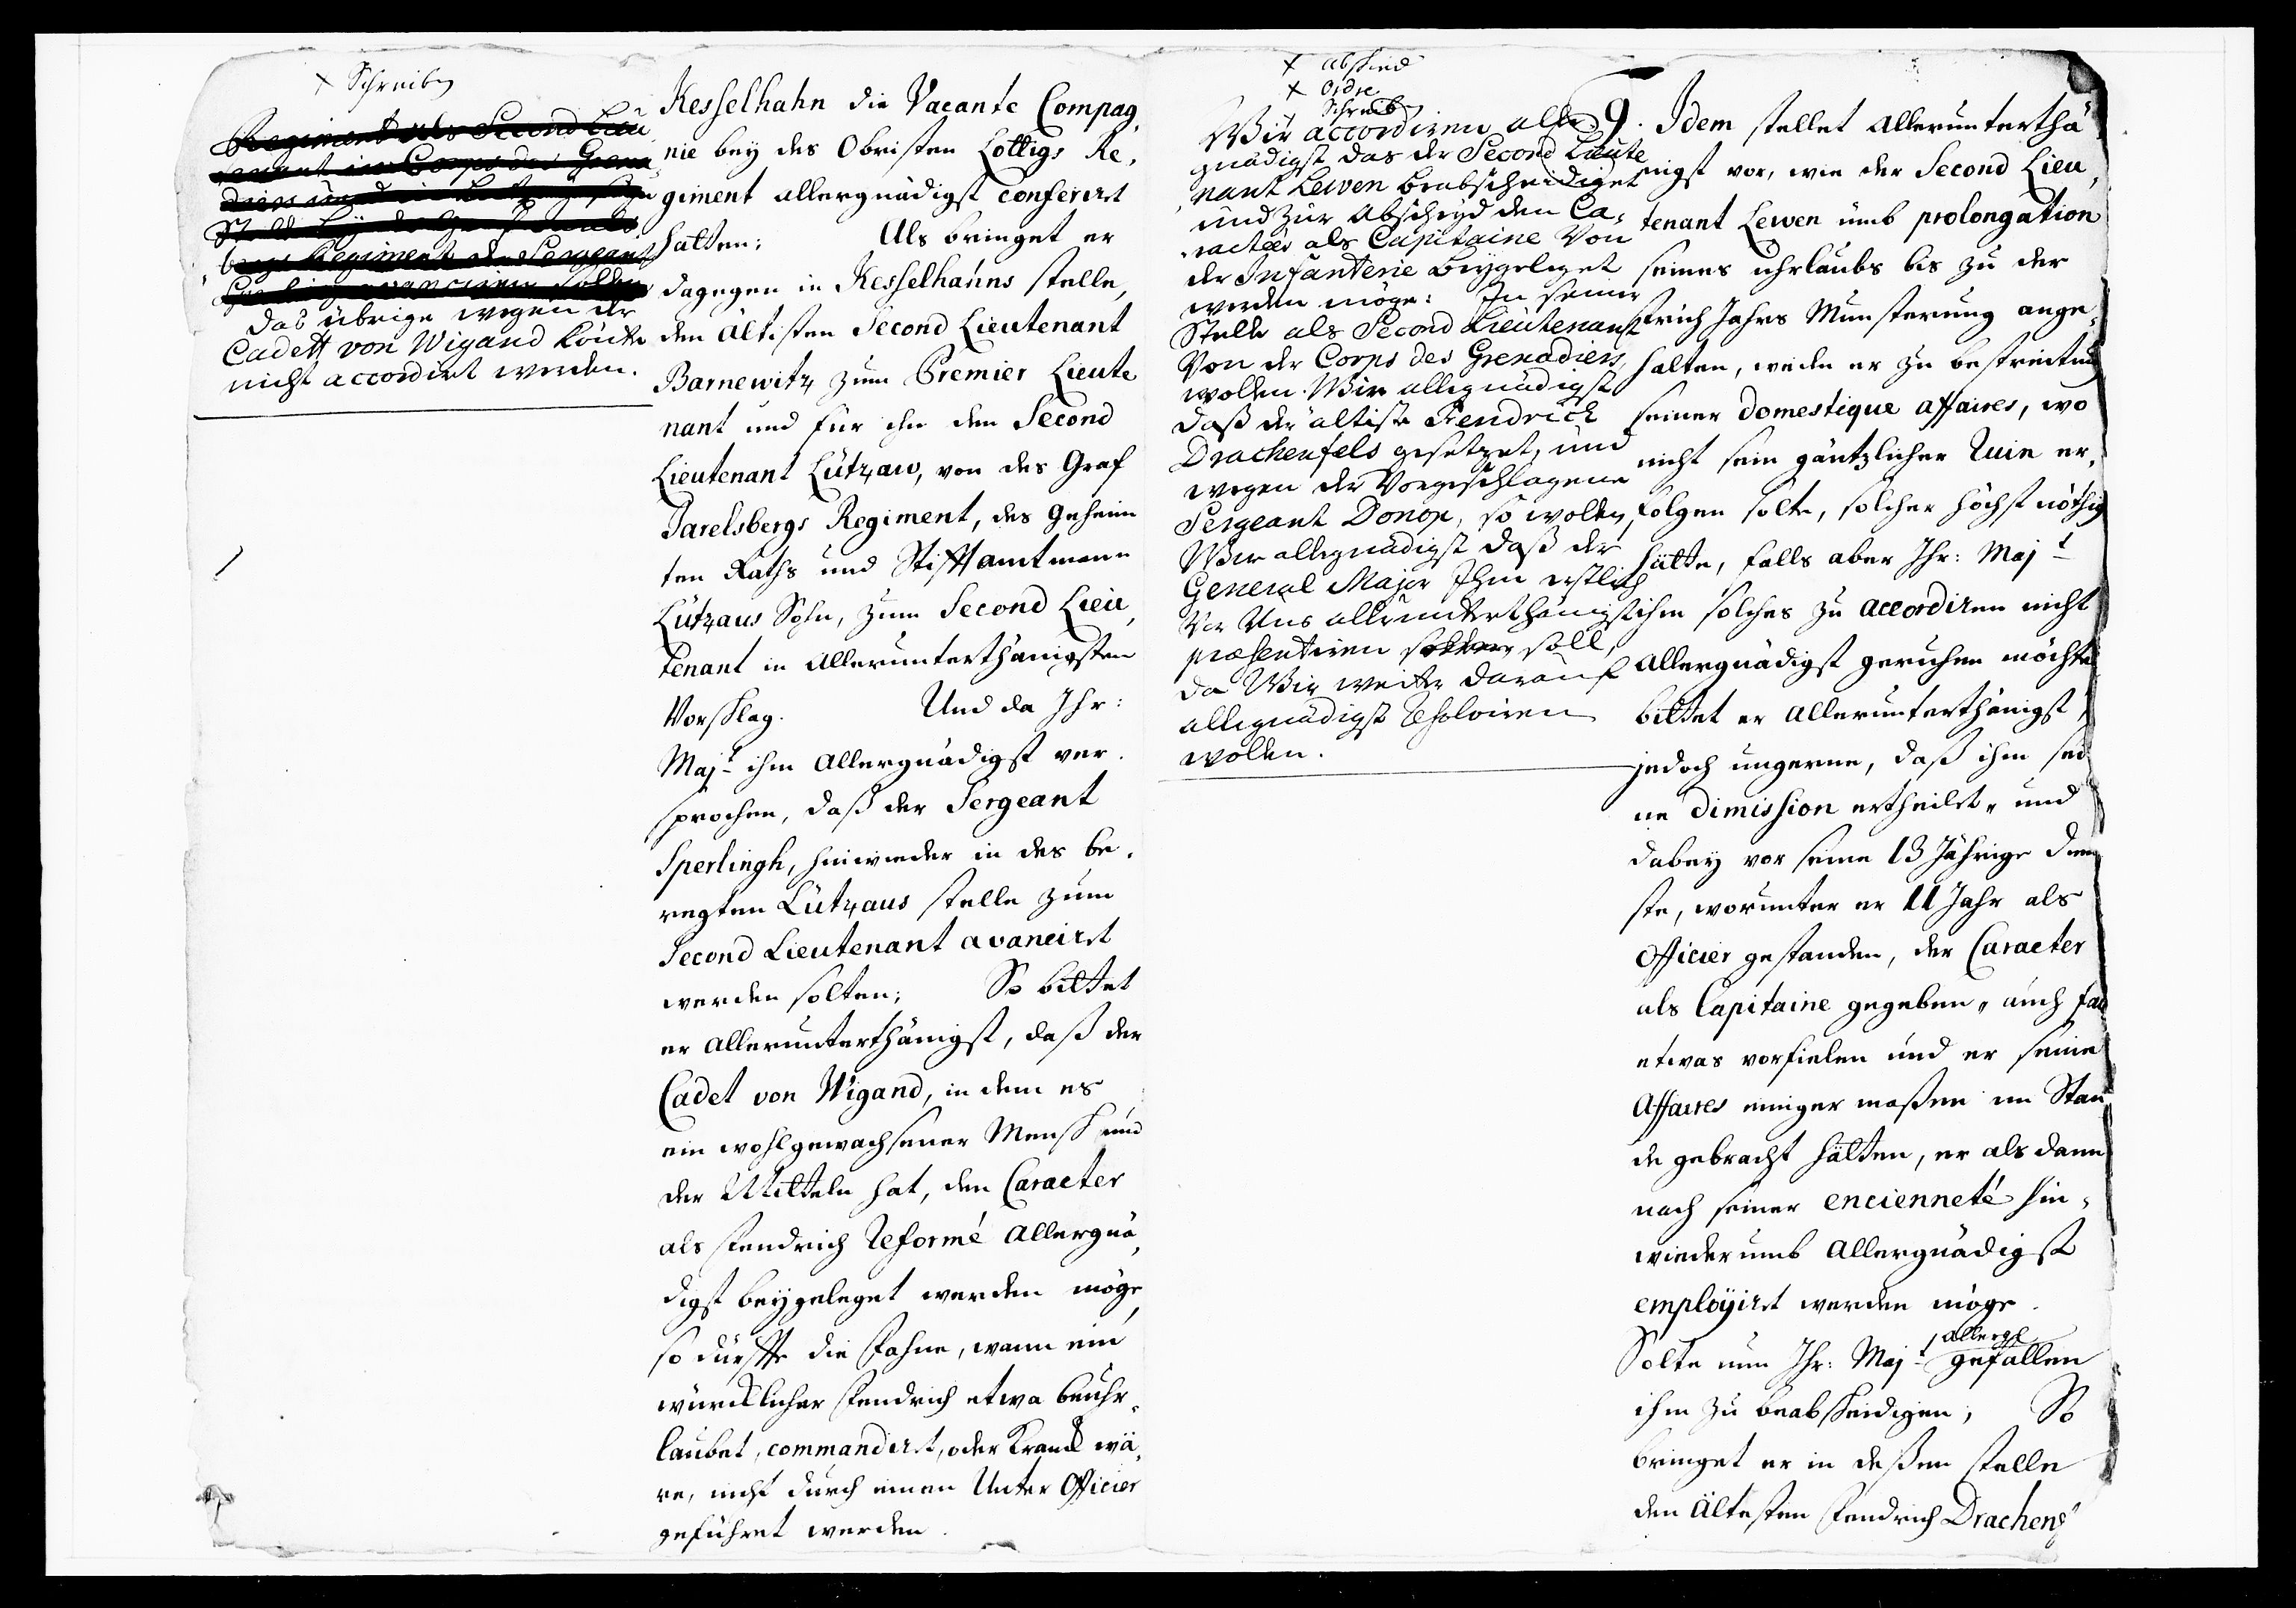 + Schreiben
Regiment als Second Lieu
tenant im Corps des Grena
diers und in
Stelle bey des Graf Jarels
bergs Regiment der Sergeant
Sperling avanciren sollen
das übrige wegen der
Cadett von Wigand könte
nicht accordirt werden.
Kesselhahn die Vacante Compag,
nie bey des Obristen Lottigs Re,
giment allergnädigst conferirt
hatten; Als bringet er
dagegen in Kesselhahns stelle,
den Ältisten Second Lieutenant
Barnewitz zum Premier Lieute
nant und für ihn den Second
Lieutenant Lützaw, von des Graf
Jarelsbergs Regiment, des Geheim
ten Raths und Stifftamtmann
Lützaus Sohn, zum Second Lieu,
tenant in Allerunterthänigsten
Vorschlag. Und da Ihr:
Majt ihm Allergnädigst ver.
sprochen, daß der Sergeant
Sperlingh, hinwieder in des be.
regten Lützaus stelle zum
Second Lieutenant avanciret
werden solten; So bittet
er Allerunterthänigst, daß der
Cadet von Wigand, in dem es
ein wohlgewachsener Mensch und
der Mitteln hat, den Caracter
als Fendrich Reformé Allergnä,
digst beygeleget werden möge,
so dürffte die Fahne, wann ein
würcklicher Fendrich etwa beuhr,
laubet, commandirt, oder Kranck wä,
re, nicht durch einen Unter Officier
geführet werden.
+ Abschied
+ Ordre
Schreiben
Wir accordiren aller
gnädigst das der Second Lieute
nant Lewen beabscheidiget
und zur Abscheyd den Ca,
racter als Capitaine Von
der Infanterie beygeleget
werden möge: In seine
Stelle als Second Lieutenant
Von der Corps des Grenadiers
wollen Wir allergnädigst
daß der ältiste Fendrich
Drachenfels gesetzet, und
wegen der Vorgeschlagene
Sergeant Donop, so wollen
Wir allergnädigst daß der
General Major Ihm erstlich
Vor Uns allerunterthänigst
præsentiren sollen soll,
da Wir weiter darauf
allergnädigst Resolviren
wollen.
9. Idem stellet Allerunterthä
nigst vor, wie der Second Lieu,
tenant Lewen umb prolongation
seines uhrlaubs bis zu der
Früh Jahrs Munsterung ange,
halten, welche er zu bestreitung
seiner Domestique Affaires, wo
nicht sein gäntzlicher Ruin er,
folgen solte, solcher höchst nöthig
hätte, falls aber Ihr: Majt
ihm solches zu accordiren nicht
Allergnädigst geruhen möchte
bittet er Allerunterthänigst,
jedoch ungerne, daß ihm sei
ne Dimission ertheilet, und
dabey vor seine 13 Jährige Dien
ste, worunter er 11 Jahr als
Officier gestanden, der Caracter
als Capitaine gegeben, auch fals
etwas vorfielen und er seine
Affaires einiger maßen im Stan
de gebracht hätten, er als dann
nach seiner encienneté hin,
wiederumb Allergnädigst
employiret werden möge.
Solte nun Ihr: Majt allergst gefallen
ihm zu beabscheidigen; So
bringet er in deßen stelle
den Ältesten Fendrich Drachenf